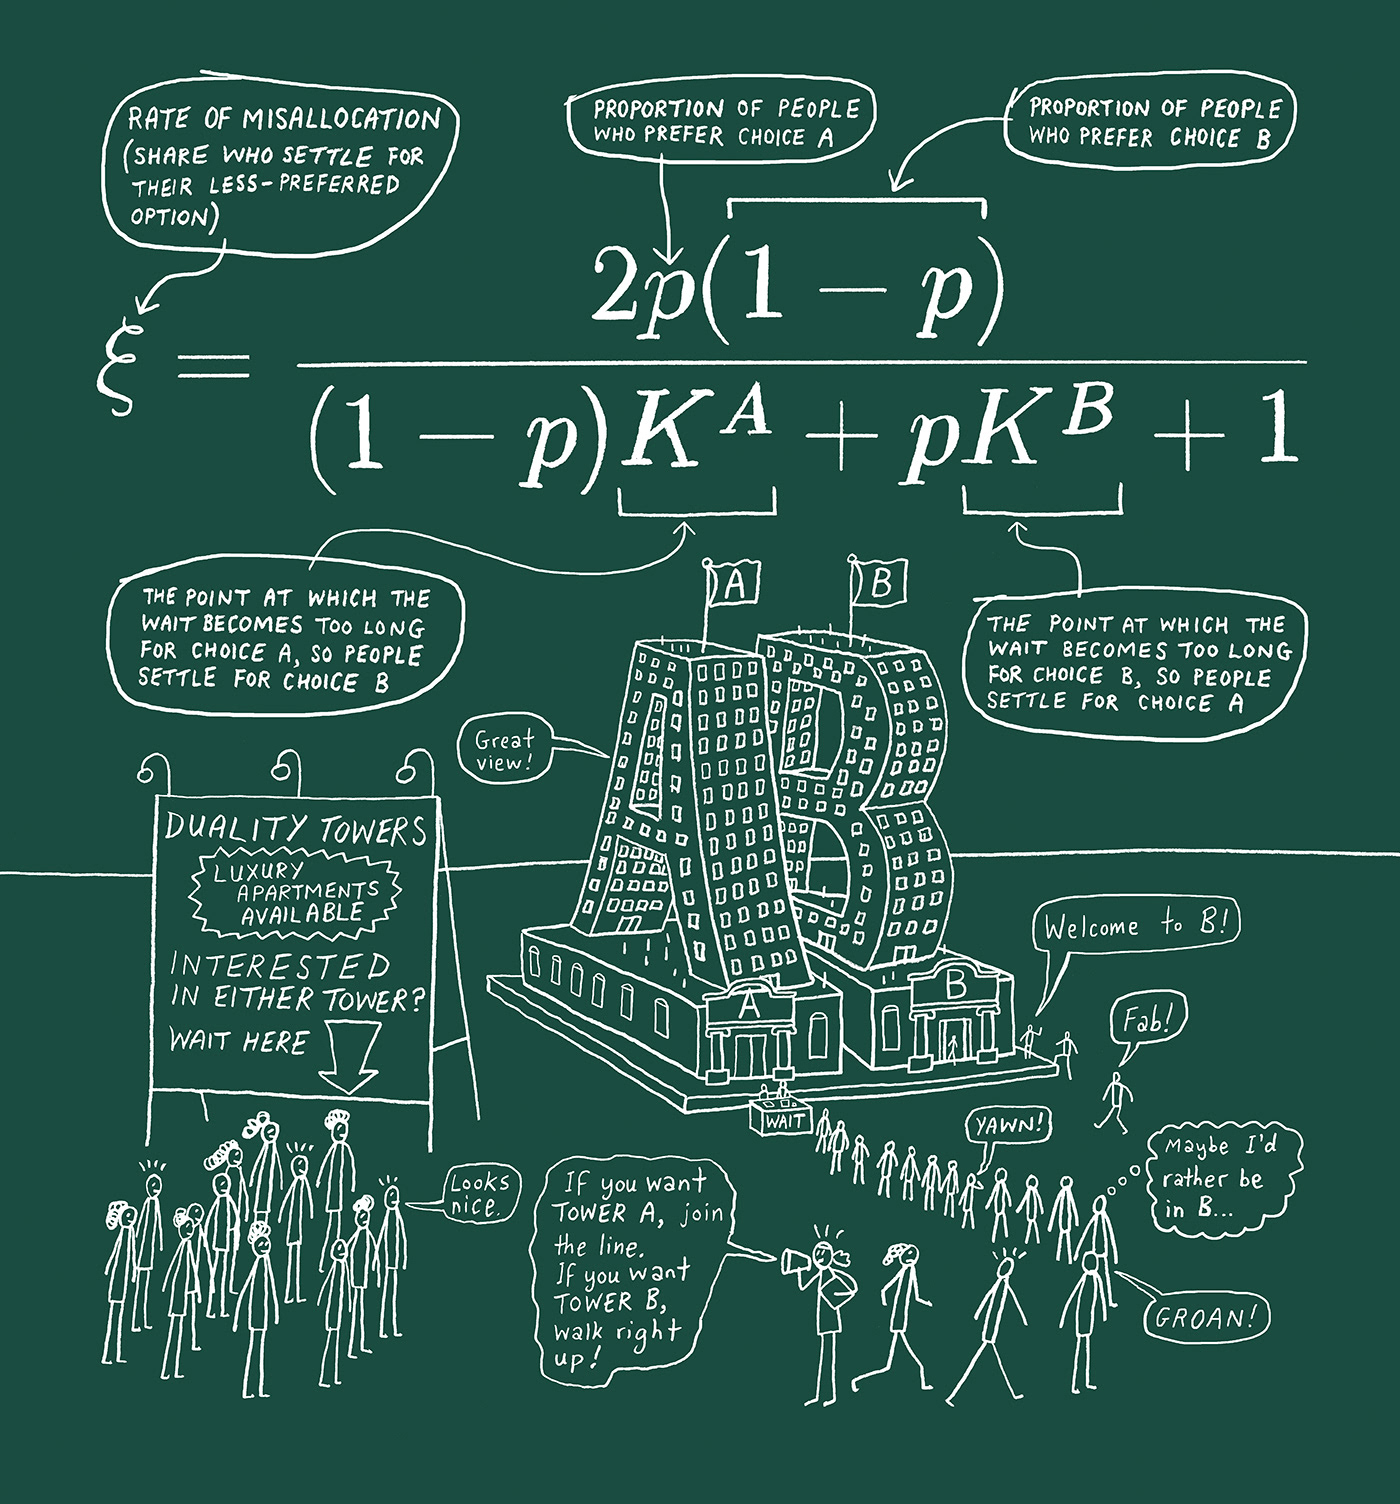 RATE OF MISALLOCATION
(SHARE WHO SETTLE FOR
THEIR LESS-PREFERRED
OPTION)
PROPORTION OF PEOPLE
WHO PREFER CHOICE A
PROPORTION OF PEOPLE
WHO PREFER CHOICE B
2p(1 − p)
ξ =
(1 − p)K^A + pK^B + 1
THE POINT AT WHICH THE
WAIT BECOMES TOO LONG
FOR CHOICE A, SO PEOPLE
SETTLE FOR CHOICE B
A
B
THE POINT AT WHICH THE
WAIT BECOMES TOO LONG
FOR CHOICE B, SO PEOPLE
SETTLE FOR CHOICE A
Great
view!
DUALITY TOWERS
LUXURY
APARTMENTS
AVAILABLE
INTERESTED
IN EITHER TOWER?
WAIT HERE
A
B
Welcome to B!
Fab!
WAIT
YAWN!
Maybe I'd
rather be
in B...
Looks
nice.
If you want
TOWER A, join
the line.
If you want
TOWER B,
walk right
up!
GROAN!